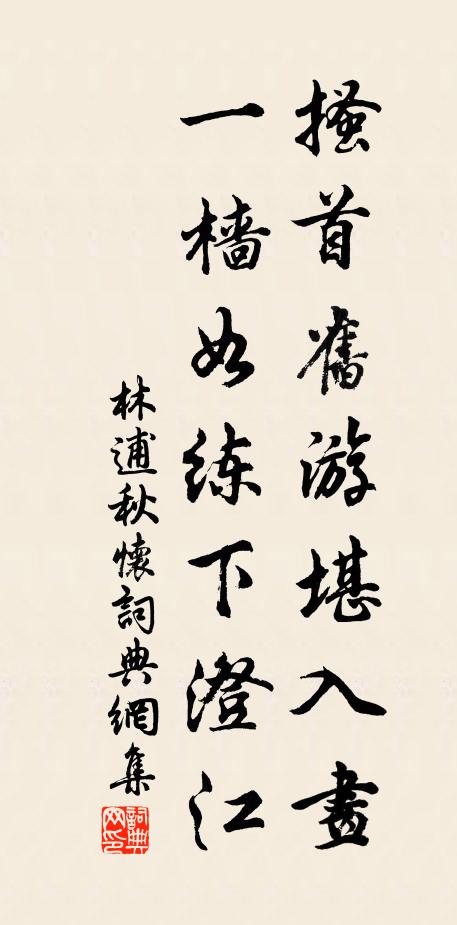 搔首舊游堪入畫
一檣如練下澄江
林逋秋懷詞典網集
詞典
网印